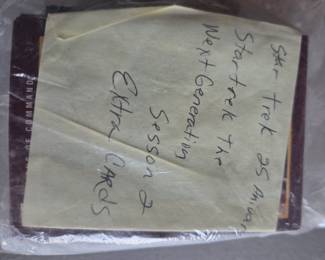 Star trek 25 Aniver
Startrek the
Next Generation
Sesson 2
Extra CARDS
COMMAND